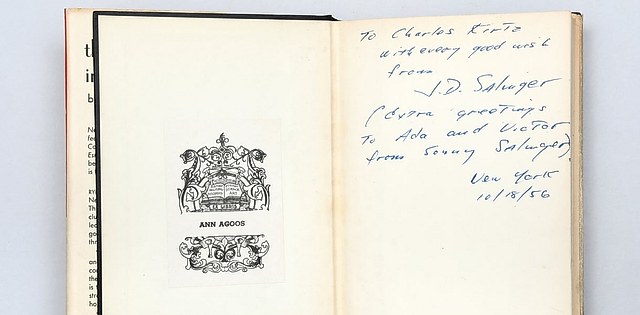 th
in
b
Ne
EX LIBRIS
ANN AGOOS
To Charles Kirtz
with every good wish
from
J.D. Salinger
(Extra greetings
To Ada and Victor
from Sonny Salinger).
New York
10/18/56